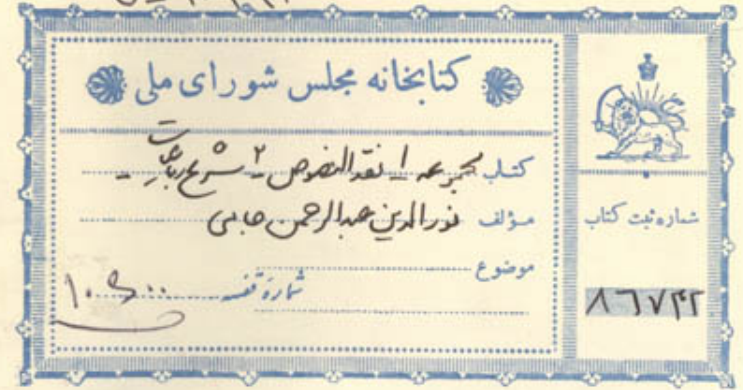 کتابخانه مجلس شورای ملی
کتاب مجموعه ۱- نقد النصوص ۲- شرح رباعیات -
مؤلف نورالدین عبدالرحمن جامی
موضوع
شمارهٔ قفسه
شماره ثبت کتاب
۸۶۷۴۲